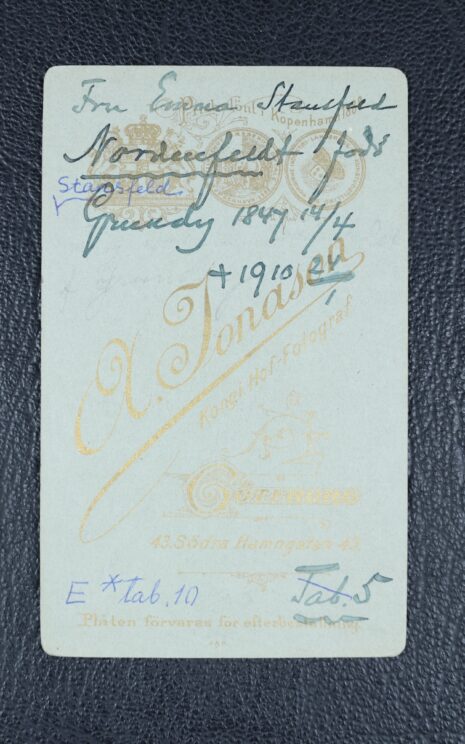 Fru Emma Stansfeld
Kopenhamn 1888
Nordenfeldt född
Stansfeld.
Grundy 1847 14/4
+ 1910 24/1
A. Jonason
Kongl. Hof-Fotograf
Göteborg
43. Södra Hamngatan 43.
E * tab. 10
Tab. 5
Plåten förvaras för efterbeställning